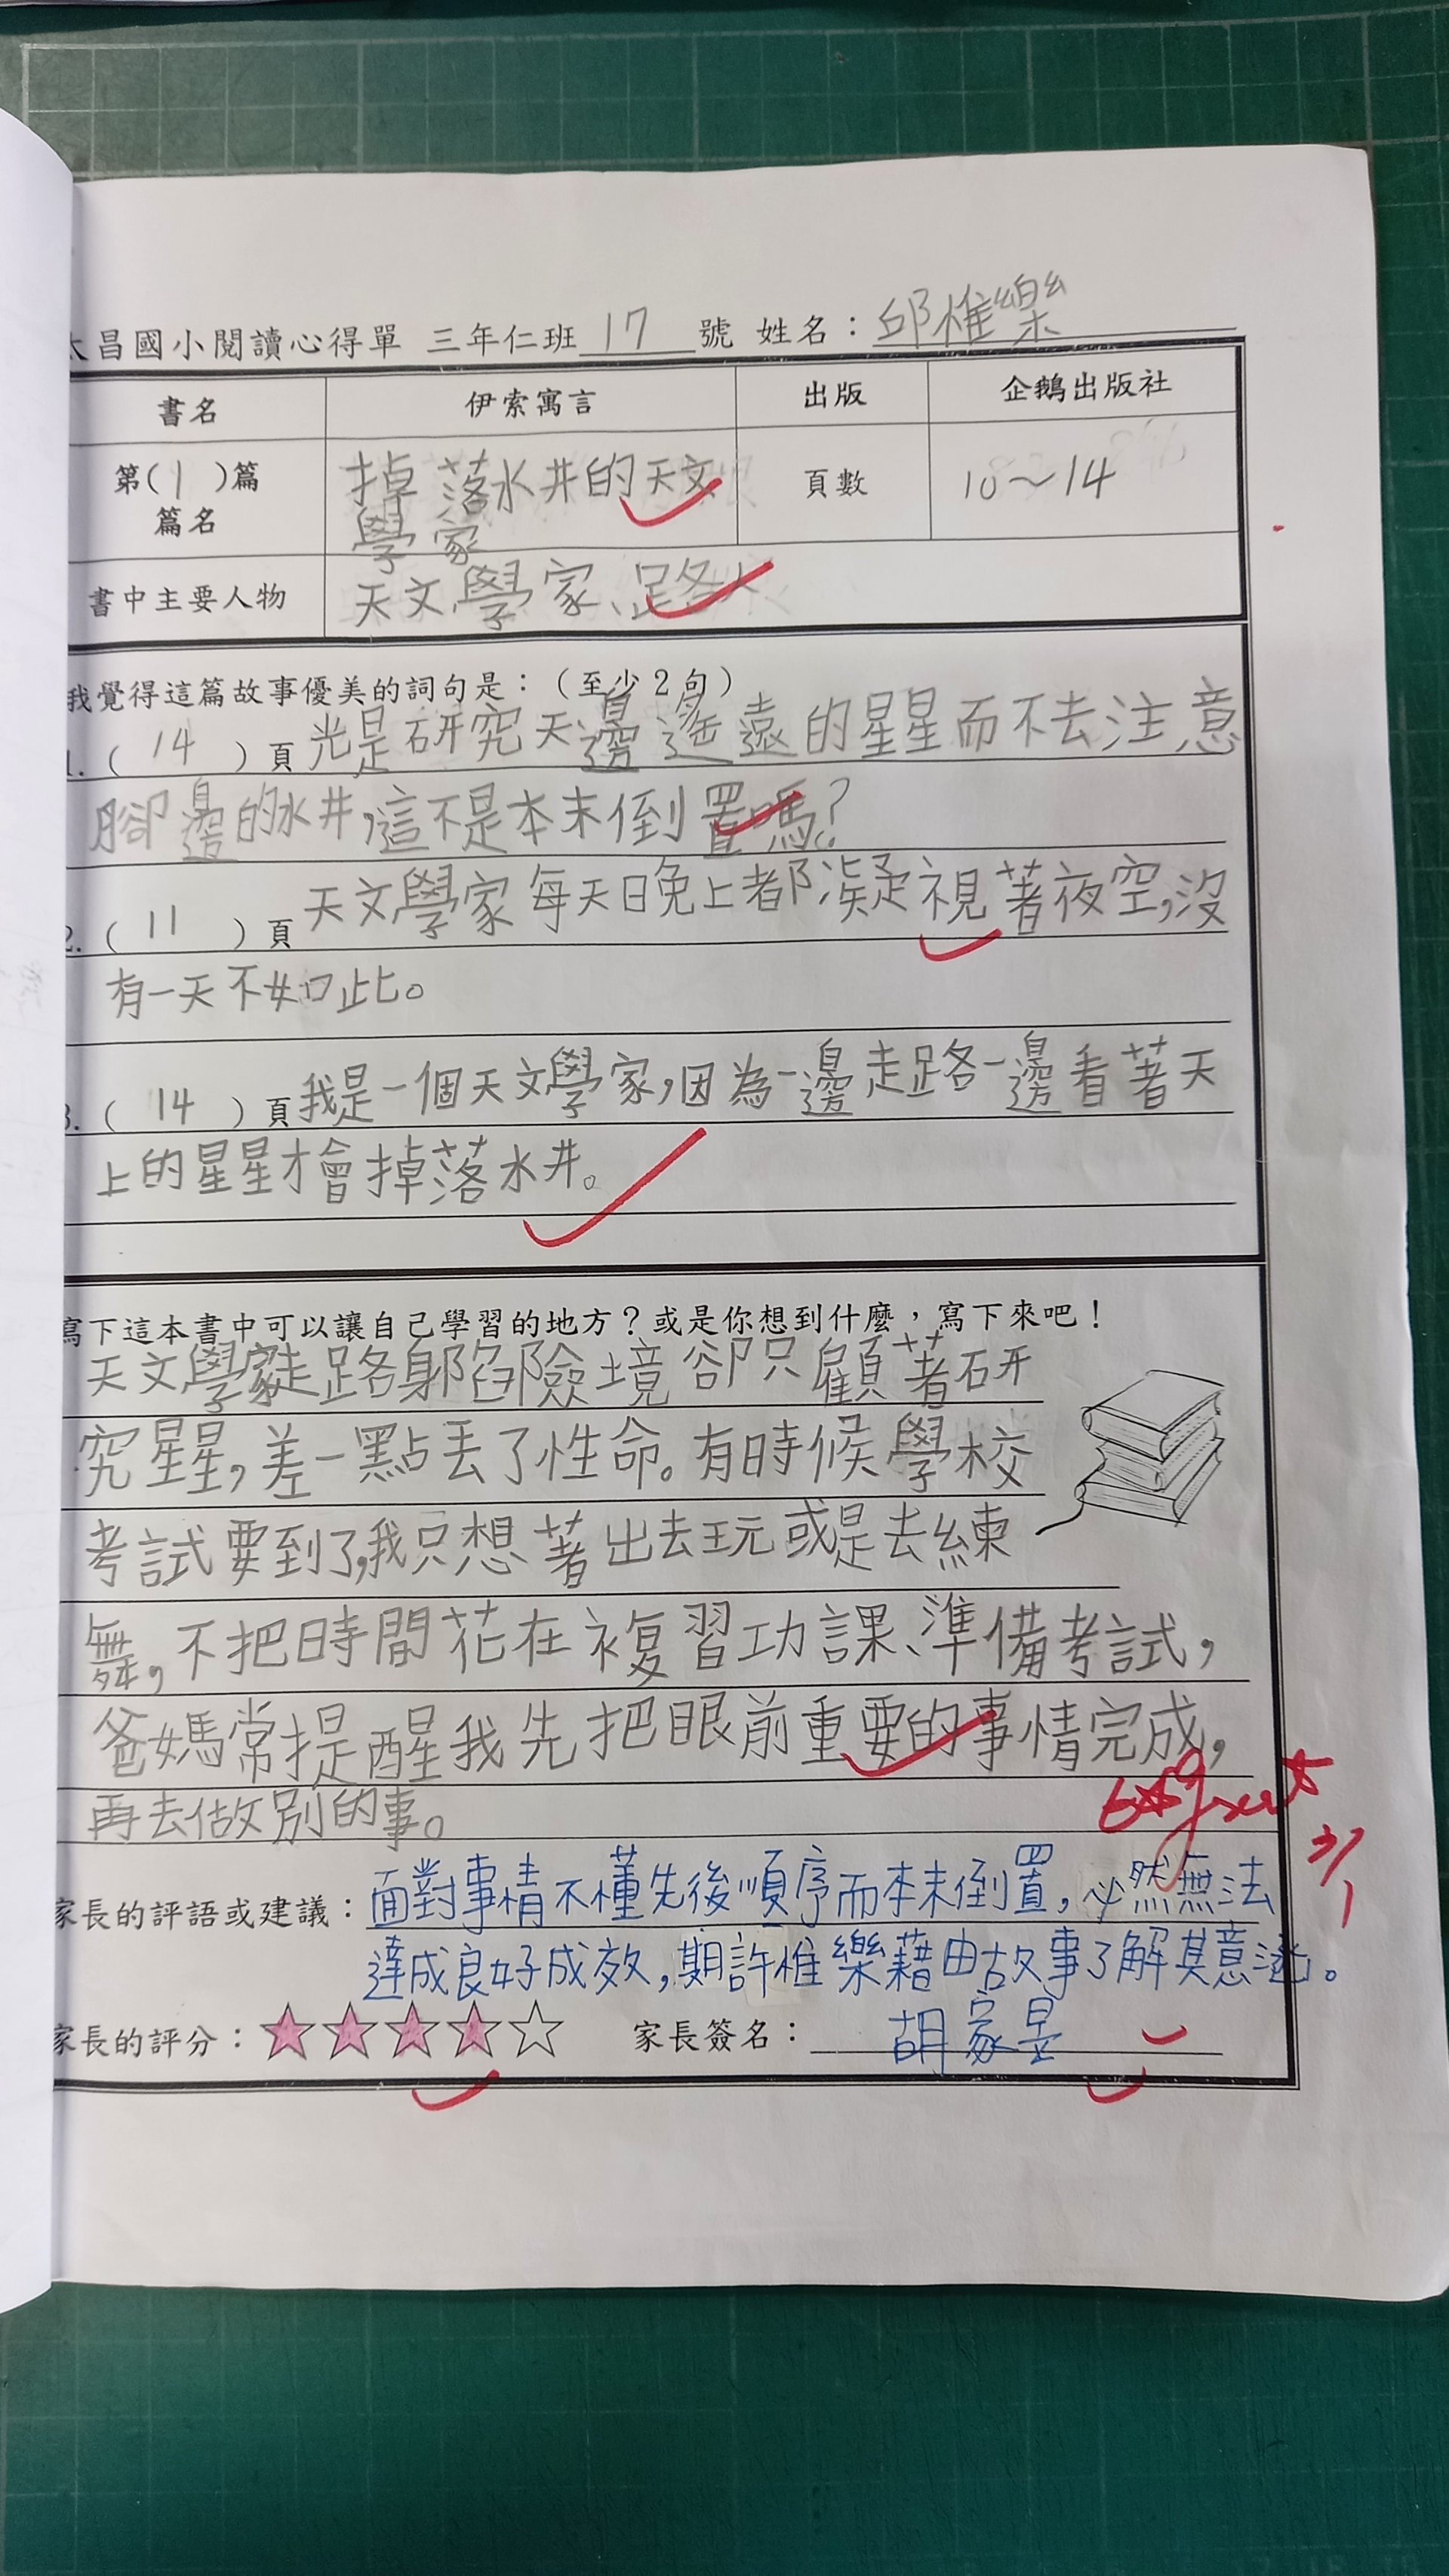 昌國小閱讀心得單 三年仁班 17 號 姓名：邱惟樂
書名 伊索寓言 出版 企鵝出版社
第(1)篇 篇名 掉落水井的天文學家 頁數 10～14
書中主要人物 天文學家、路人
我覺得這篇故事優美的詞句是：（至少2句）
1.（ 14 ）頁 光是研究天邊遙遠的星星而不去注意
腳邊的水井，這不是本末倒置嗎？
2.（ 11 ）頁 天文學家每天晚上都凝視著夜空，沒
有一天不如此。
3.（ 14 ）頁 我是一個天文學家，因為一邊走路一邊看著天
上的星星才會掉落水井。
寫下這本書中可以讓自己學習的地方？或是你想到什麼，寫下來吧！
天文學家走路身陷險境卻只顧著研
究星星，差一點丟了性命。有時候學校
考試要到了，我只想著出去玩或是去練
舞，不把時間花在複習功課、準備考試，
爸媽常提醒我先把眼前重要的事情完成，
再去做別的事。
家長的評語或建議：面對事情不懂先後順序而本末倒置，必然無法
達成良好成效，期許惟樂藉由故事了解其意涵。
家長的評分：☆☆☆☆☆ 家長簽名：胡家昱
3/1